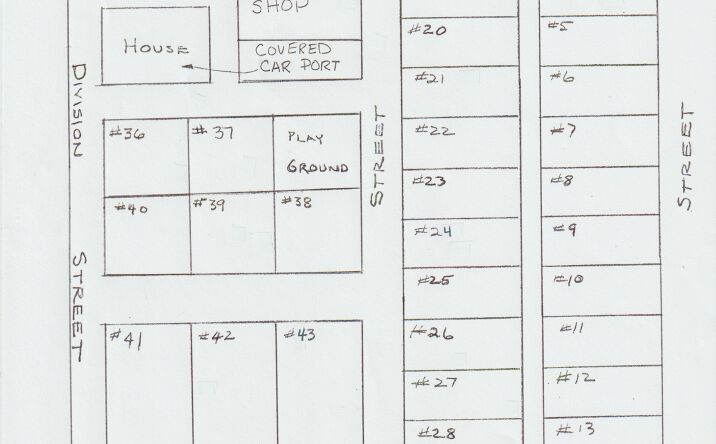 SHOP
HOUSE
COVERED
CAR PORT
DIVISION
STREET
#36
#37
PLAY
GROUND
#40
#39
#38
#41
#42
#43
STREET
#20
#21
#22
#23
#24
#25
#26
#27
#28
#5
#6
#7
#8
#9
#10
#11
#12
#13
STREET